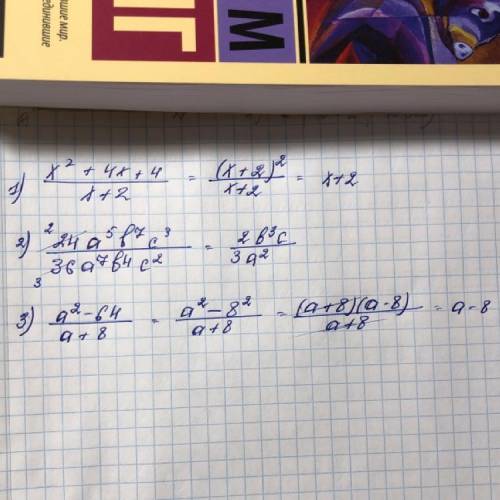 шие мир.
единившие
ТГ
М
1) (x² + 4x + 4)/(x+2) = (x+2)²/(x+2) = x+2
2) 24a⁵b⁷c³/36a⁷b⁴c² = 2b³c/3a²
3) (a² - 64)/(a+8) = (a² - 8²)/(a+8) = (a+8)(a-8)/(a+8) = a-8